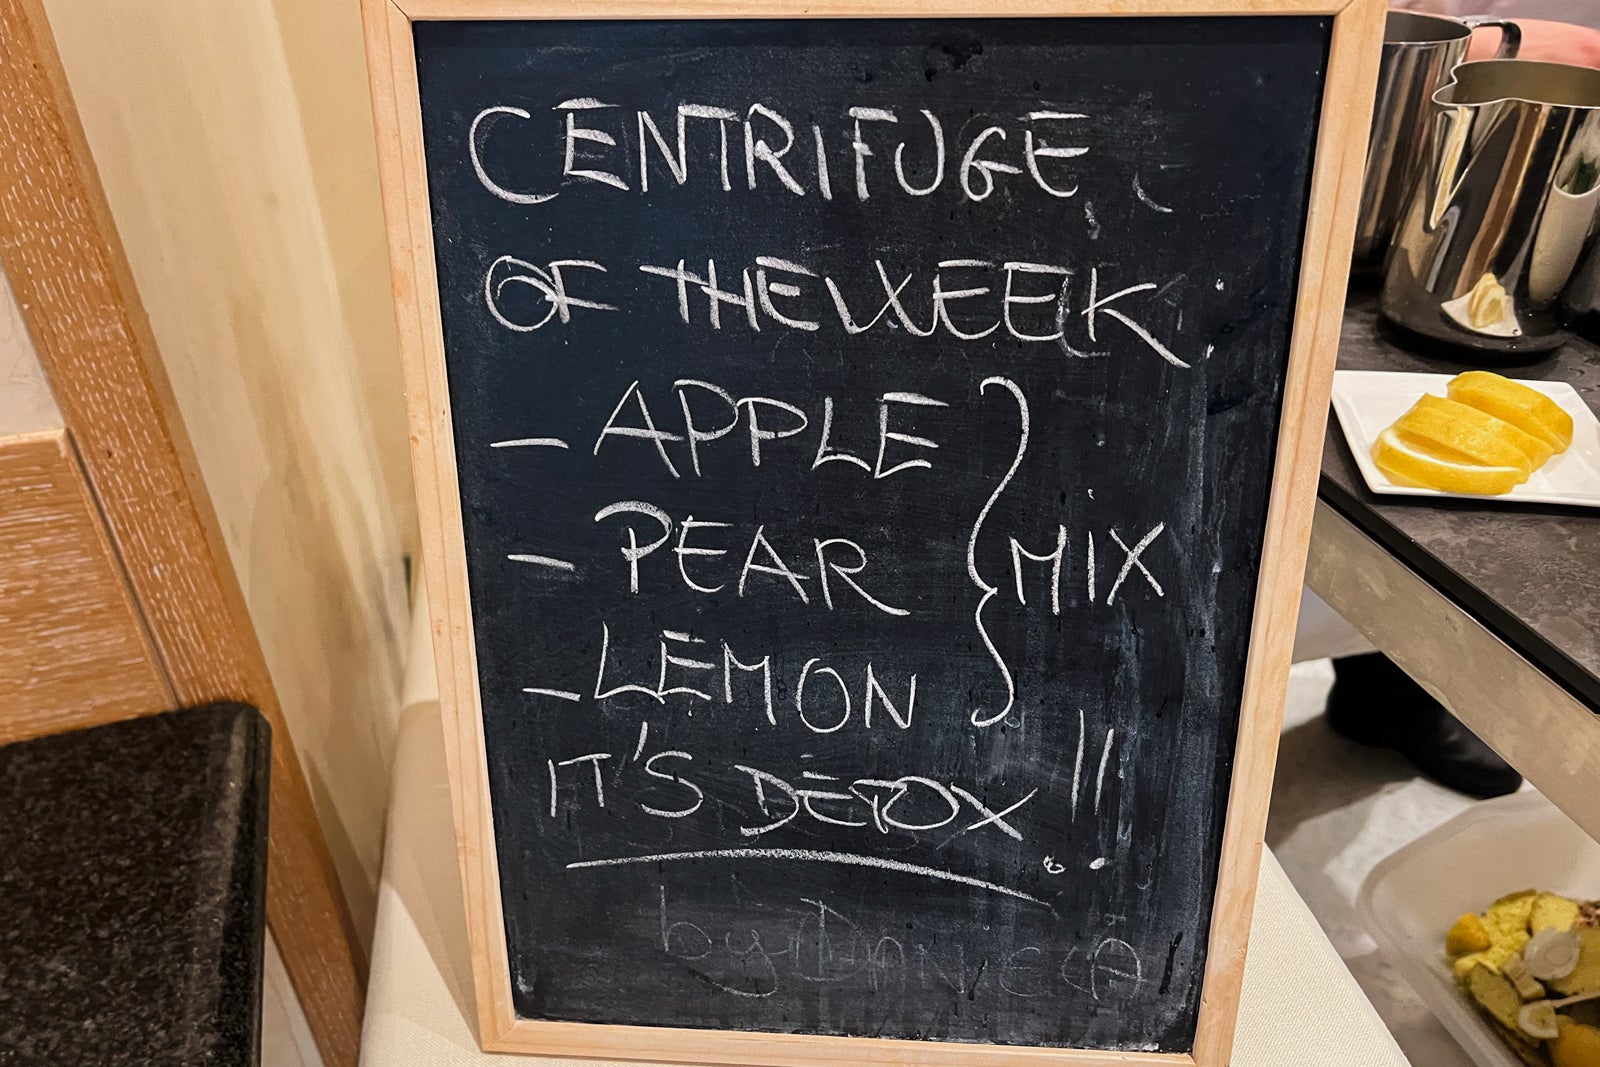 CENTRIFUGE
OF THE WEEK
- APPLE
- PEAR } MIX
- LEMON
IT'S DETOX !!
by